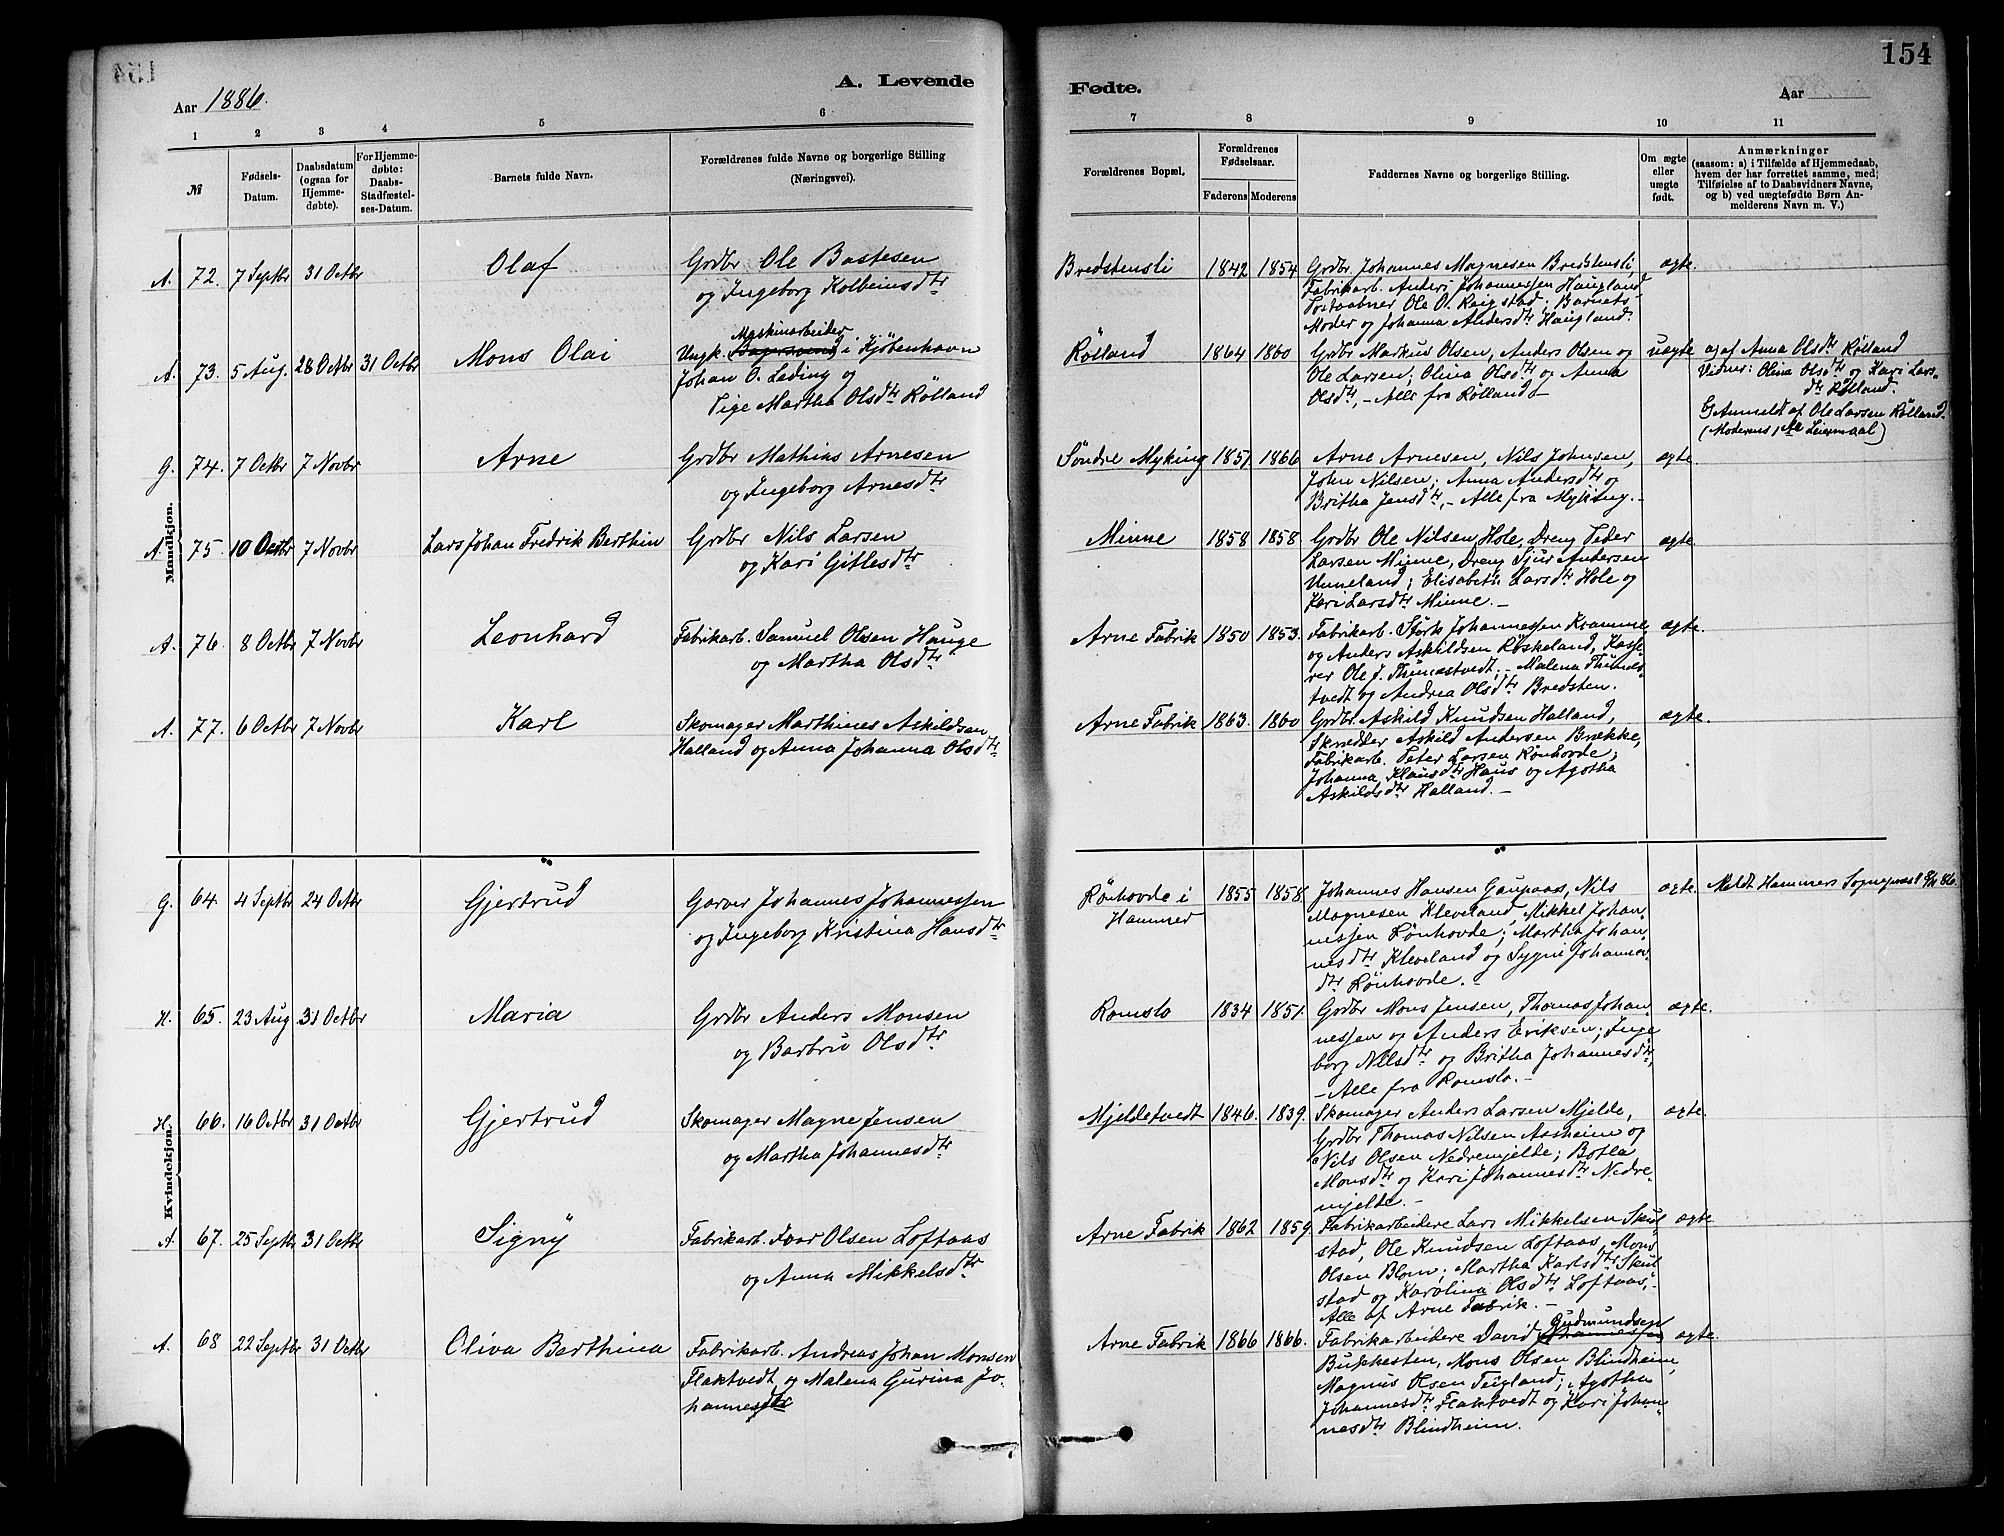 154
A. Levende
Fødte.
Aar 1886.
Aar
1 2 3 4 5 6 7 8 9 10 11
№
Fødsels-
Datum.
Daabsdatum
(ogsaa for
Hjemme-
døbte).
For Hjemme-
døbte:
Daabs-
Stadfæstel-
ses-Datum.
Barnets fulde Navn.
Forældrenes fulde Navne og borgerlige Stilling
(Næringsvei).
Forældrenes Bopæl.
Forældrenes
Fødselsaar.
Faderens Moderens
Faddernes Navne og borgerlige Stilling.
Om ægte
eller
uægte
født.
Anmærkninger
(saasom: a) i Tilfælde af Hjemmedaab,
hvem der har forrettet samme, med
Tilføielse af to Daabsvidners Navne,
og b) ved uægtefødte Børn An-
melderens Navn m. V.)
Mandkjøn.
A. 72. 7 Septbr 31 Octbr Olaf
Grdbr Ole Bastesen
og Ingeborg Kolbeinsdtr
Bredstensli 1842 1854
Grdbr. Johannes Magnesen Bredstensli,
Fabrikarb. Anders Johannessen Haugland
Postaabner Ole O. Reigstad; Barnets
Moder og Johanna Andersdtr Haugland.
ægte.
A. 73. 5 Aug. 28 Octbr 31 Octbr Mons Olai
Maskinarbeider
Ungk. i Kjöbenhavn
Johan O. Lading og
Pige Martha Olsdtr Rölland
Rölland 1864 1860
Grdbr Markus Olsen, Anders Olsen og
Ole Larsen; Olina Olsdtr og Anna
Olsdtr, - Alle fra Rölland -
uægte
a) af Anna Olsdtr Rölland
Vidner: Olina Olsdtr og Kari Lars-
dtr Rölland.
b) Anmeldt af Ole Larsen Rölland.
(Moderens 1ste Leiermaal)
G. 74. 7 Octbr 7 Novbr Arne
Grdbr Mathias Arnesen
og Ingeborg Arnesdtr
Söndre Myking 1851 1866
Arne Arnesen, Nils Johnsen,
John Nilsen; Anna Andersdtr og
Britha Jensdtr, - Alle fra Myking. -
ægte.
A. 75. 10 Octbr 7 Novbr Lars Johan Fredrik Berthin
Grdbr Nils Larsen
og Kari Gitlesdtr
Minne 1858 1858
Grdbr Ole Nilsen Hole, Dreng Peder
Larsen Minne, Dreng Sjur Andersen
Unneland; Elisabeth Larsdtr Hole og
Kari Larsdtr Minne. -
ægte.
A. 76. 8 Octbr 7 Novbr Leonhard
Fabrikarb. Samuel Olsen Hauge
og Martha Olsdtr
Arne Fabrik 1850 1853.
Fabrikarb. Stork Johannessen Kramme,
og Anders Askildsen Röskeland, Kasse-
rer Ole J. Thunestvedt. - Malena Thunes-
tvedt og Andrea Olsdtr Bredsten.
ægte.
A. 77. 6 Octbr 7 Novbr Karl
Skomager Marthines Askildsen
Halland og Anna Johanna Olsdtr
Arne Fabrik 1863. 1860
Grdbr. Askild Knudsen Halland,
Skrædder Askild Andersen Brække,
Fabrikarb. Peter Larsen Rönhovde;
Johanna Klausdtr Haus og Agotha
Askildsdtr Halland. -
ægte.
Kvindekjøn.
G. 64. 4 Septbr 24 Octbr Gjertrud
Garver Johannes Johannessen
og Ingeborg Kristina Hansdtr
Rönhovde i
Hammer
1855 1858
Johannes Hansen Gaupaas, Nils
Magnesen Kleveland, Mikkel Johan-
nessen Rönhovde; Martha Johan-
nesdtr Kleveland og Sygni Johannes-
dtr Rönhovde. -
ægte. Meldt Hammers Sognepræst 86.
H. 65. 23 Aug 31 Octbr Maria
Grdbr Anders Monsen
og Barbru Olsdtr
Romslo 1834 1851.
Grdbr Mons Jensen, Thomas Johan-
nessen og Anders Eriksen; Inge-
borg Nilsdtr og Britha Johannesdtr,
- Alle fra Romslo. -
ægte.
H. 66. 16 Octbr 31 Octbr Gjertrud
Skomager Magne Jensen
og Martha Johannesdtr
Mjeldetvedt 1846. 1839.
Skomager Anders Larsen Mjelde,
Grdbr Thomas Nilsen Aasheim og
Nils Olsen Nedremjelde; Botla
Monsdtr og Kari Johannesdtr Nedre-
mjelde. -
ægte.
A. 67. 25 Septbr 31 Octbr Signy
Fabrikarb. Ivar Olsen Loftaas
og Anna Mikkelsdtr
Arne Fabrik 1862 1859.
Fabrikarbeidere Lars Mikkelsen Skul-
stad, Ole Knudsen Loftaas, Mons
Olsen Blom; Martha Karlsdtr Skul-
stad og Karolina Olsdtr Loftaas,-
Alle af Arne Fabrik. -
ægte.
A. 68 22 Septbr 31 Octbr Oliva Berthina
Fabrikarb. Andreas Johan Monsen
Flaktvedt og Malena Gurina Jo-
hannesdtr
Arne Fabrik 1866 1866.
Gudmundsen
Fabrikarbeidere David Johannessen
Bukkesten, Mons Olsen Blindheim,
Magnus Olsen Teigland; Agotha
Johannesdtr Flaktvedt og Kari Johan-
nesdtr Blindheim.
ægte.